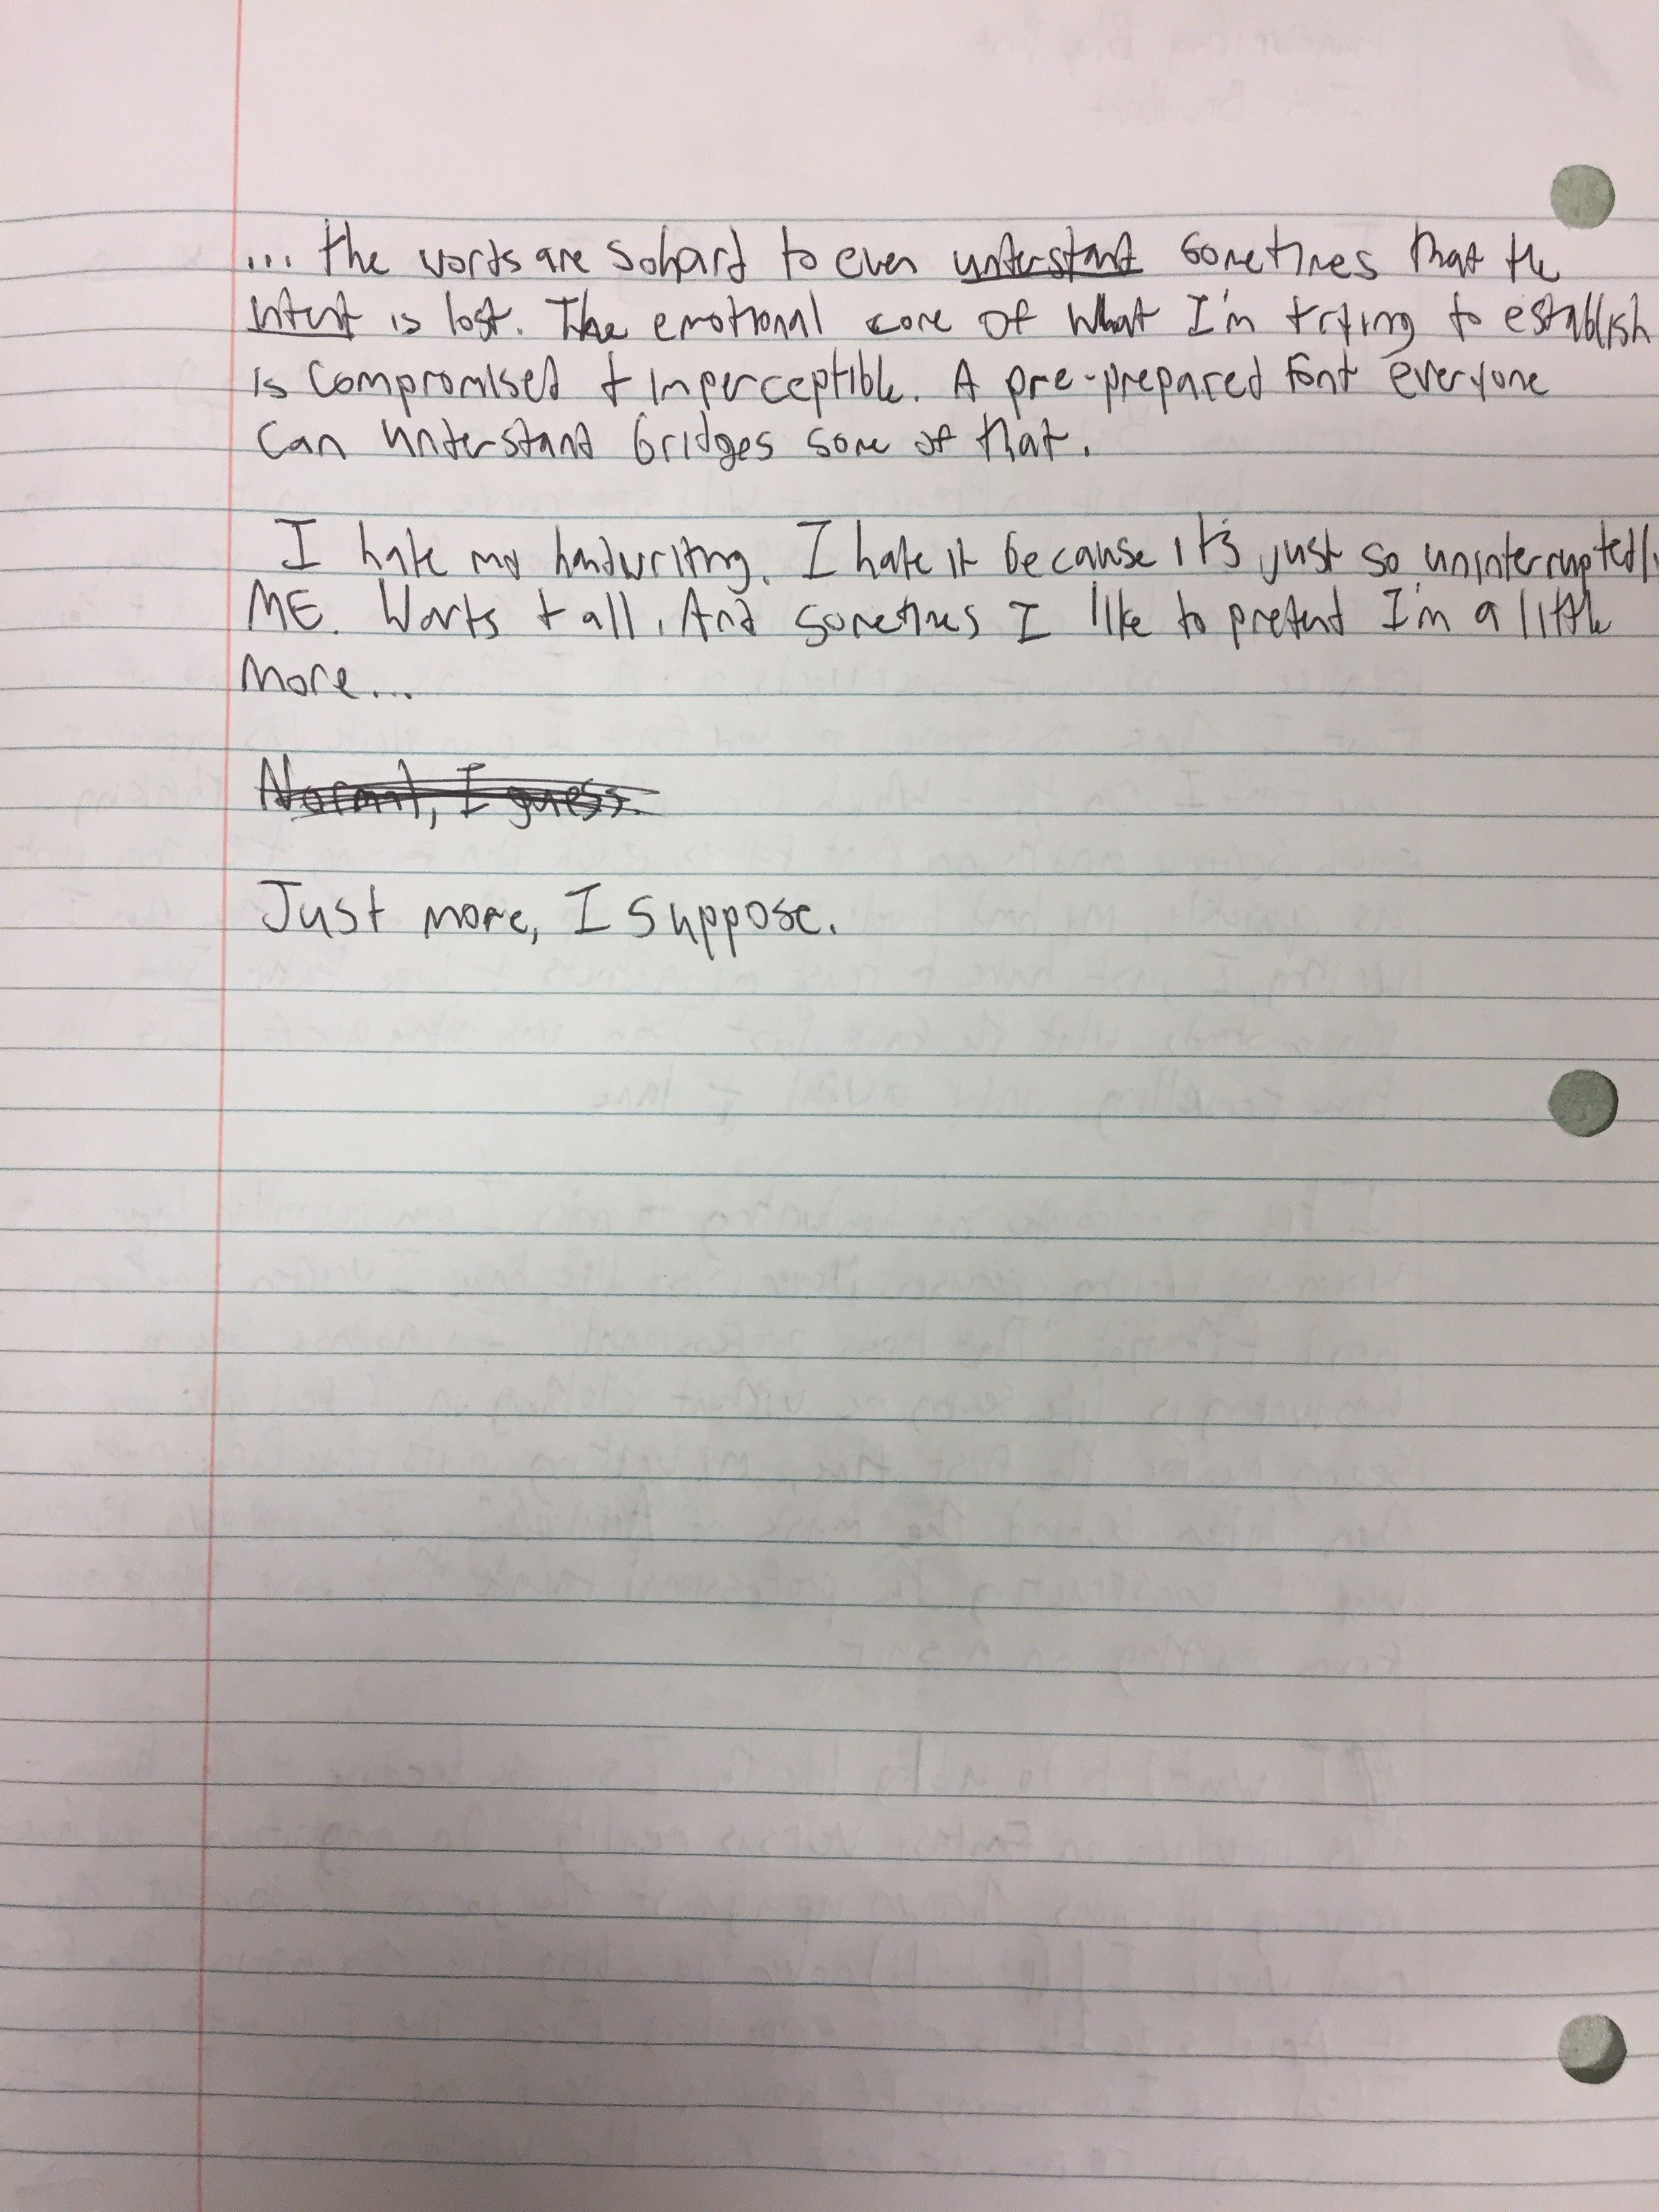 ... the words are so hard to even understand sometimes that the
intent is lost. The emotional core of what I'm trying to establish
is compromised + imperceptible. A pre-prepared font everyone
can understand bridges some of that.
I hate my handwriting. I hate it because it's just so uninterruptedly
ME. Warts + all. And sometimes I like to pretend I'm a little
more...
Normal, I guess.
Just more, I suppose.